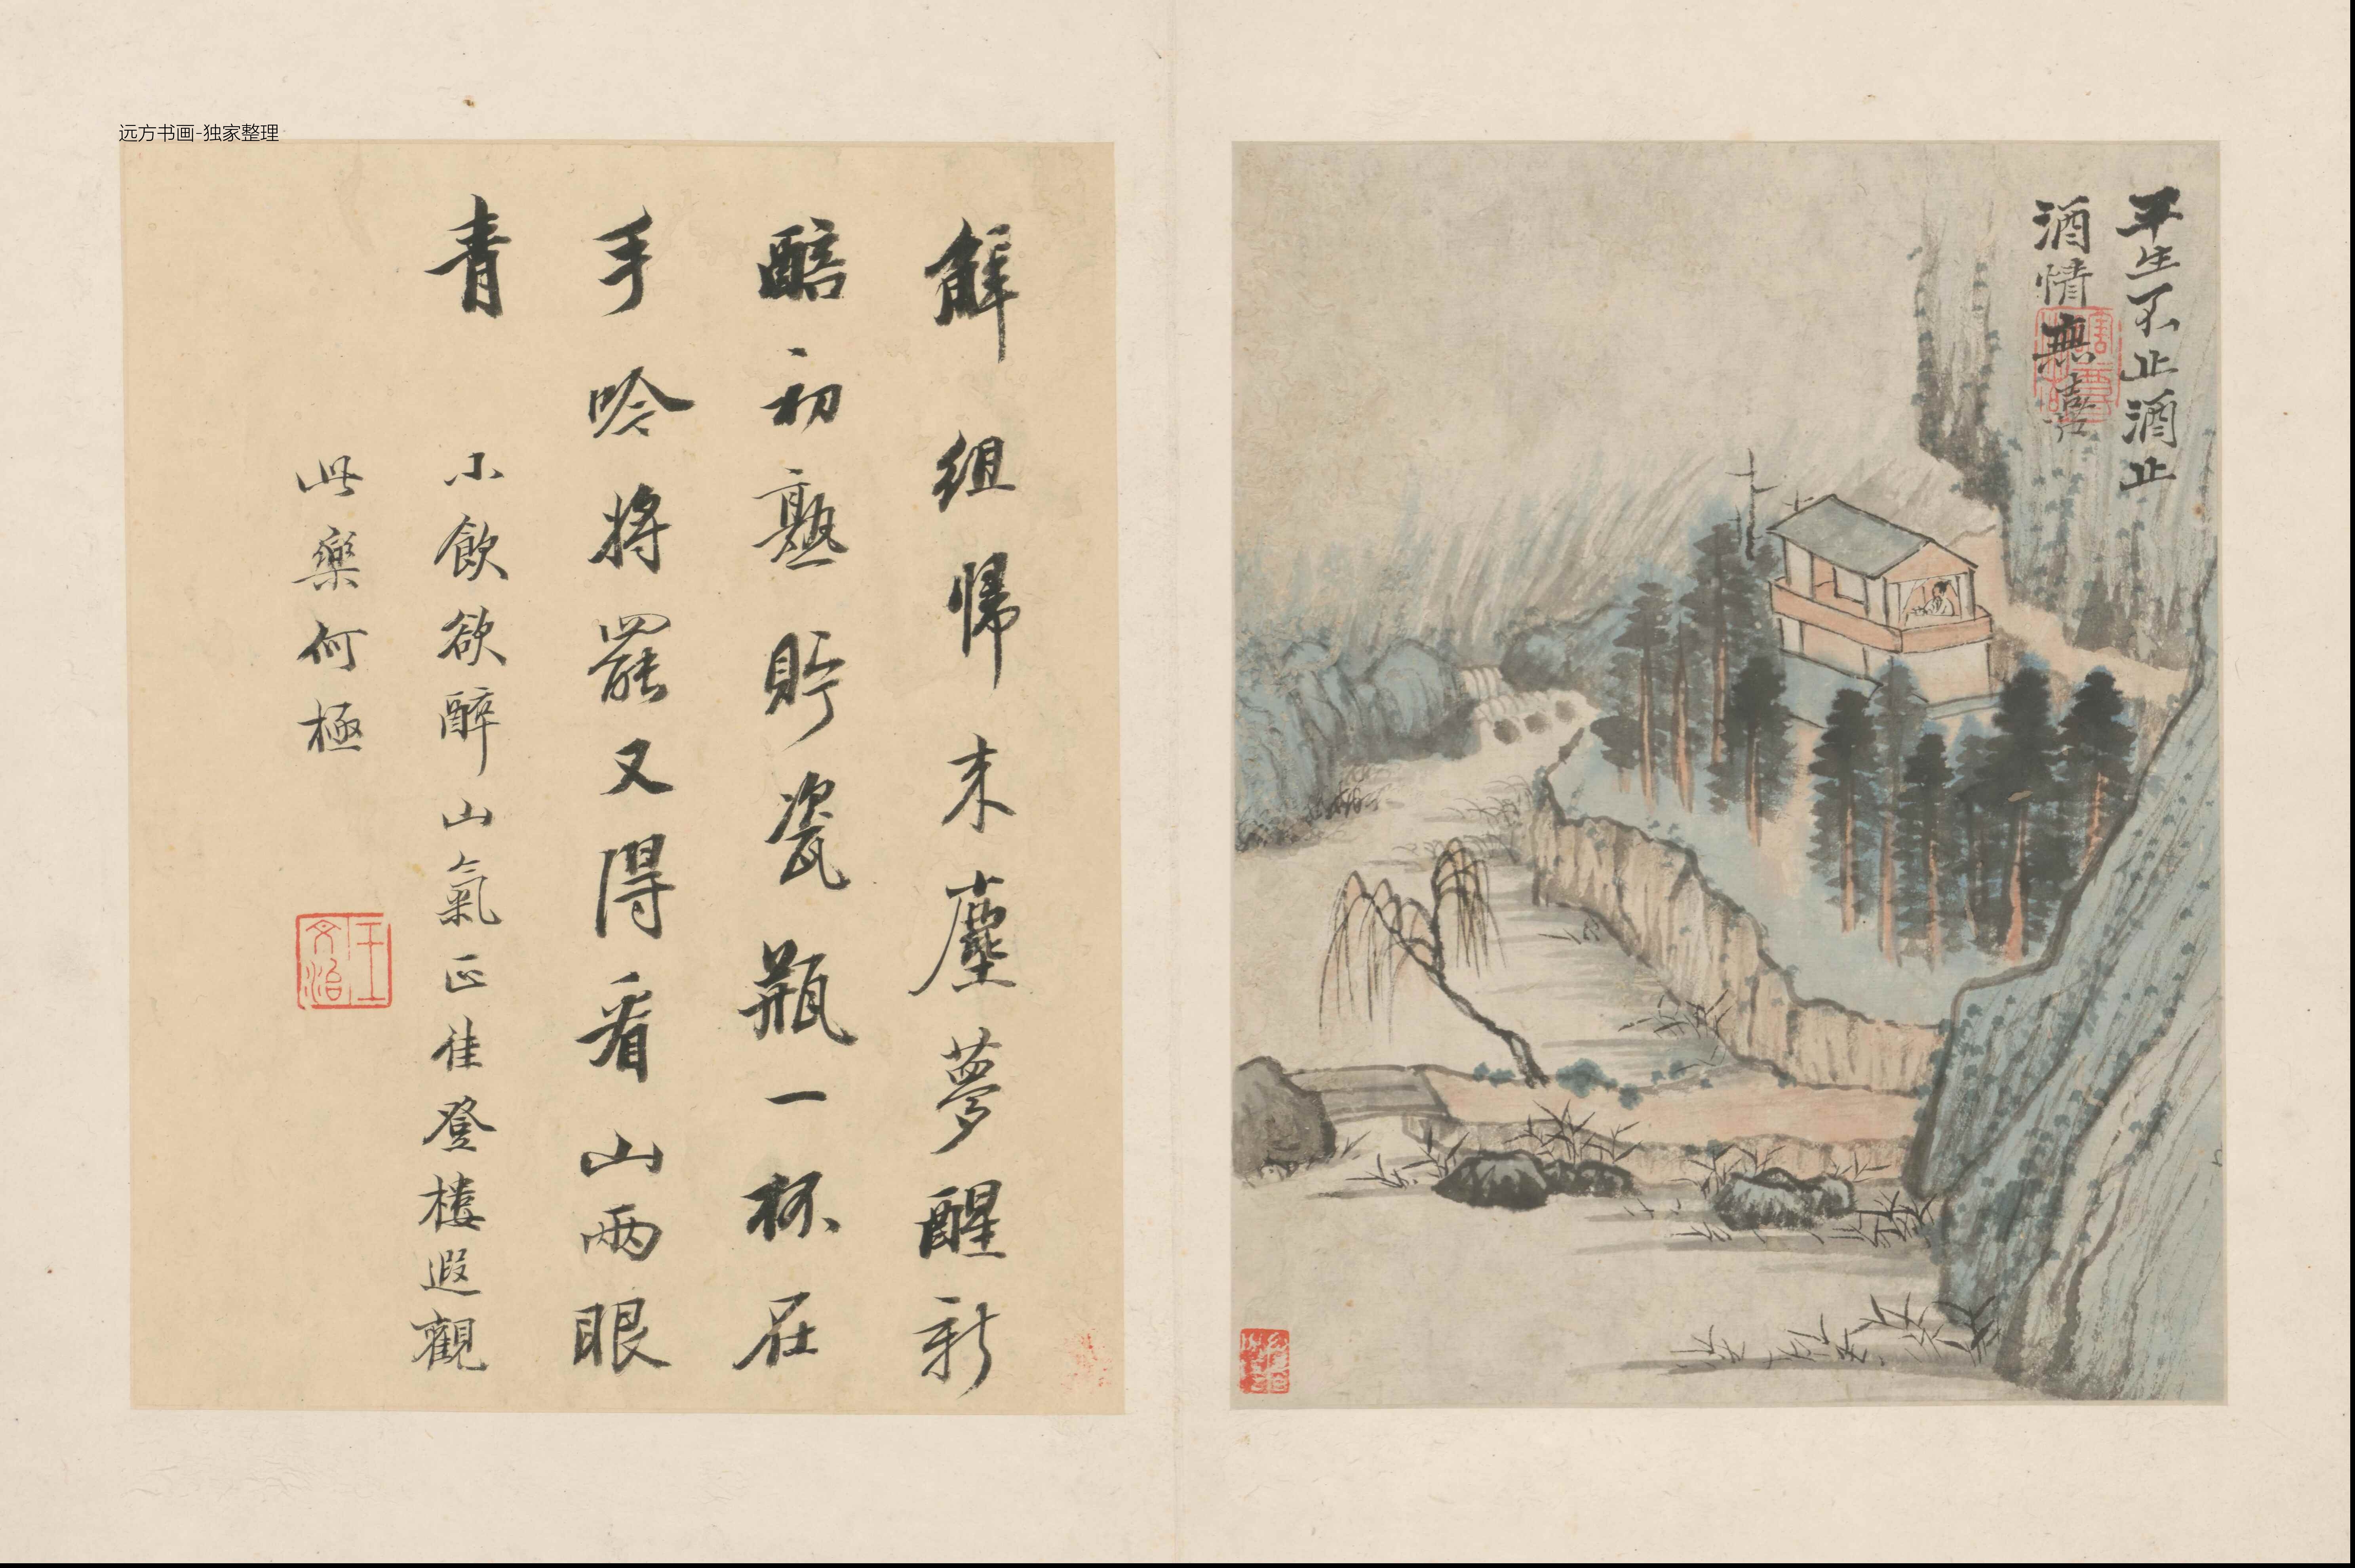 远方书画-独家整理
平生不止酒止
酒情無喜
解組帰来塵夢醒新
醅初熟貯瓷瓶一杯在
手吟將罷又得看山兩眼
青
小飲欲醉山氣正佳登樓遐觀
此樂何極
王文治